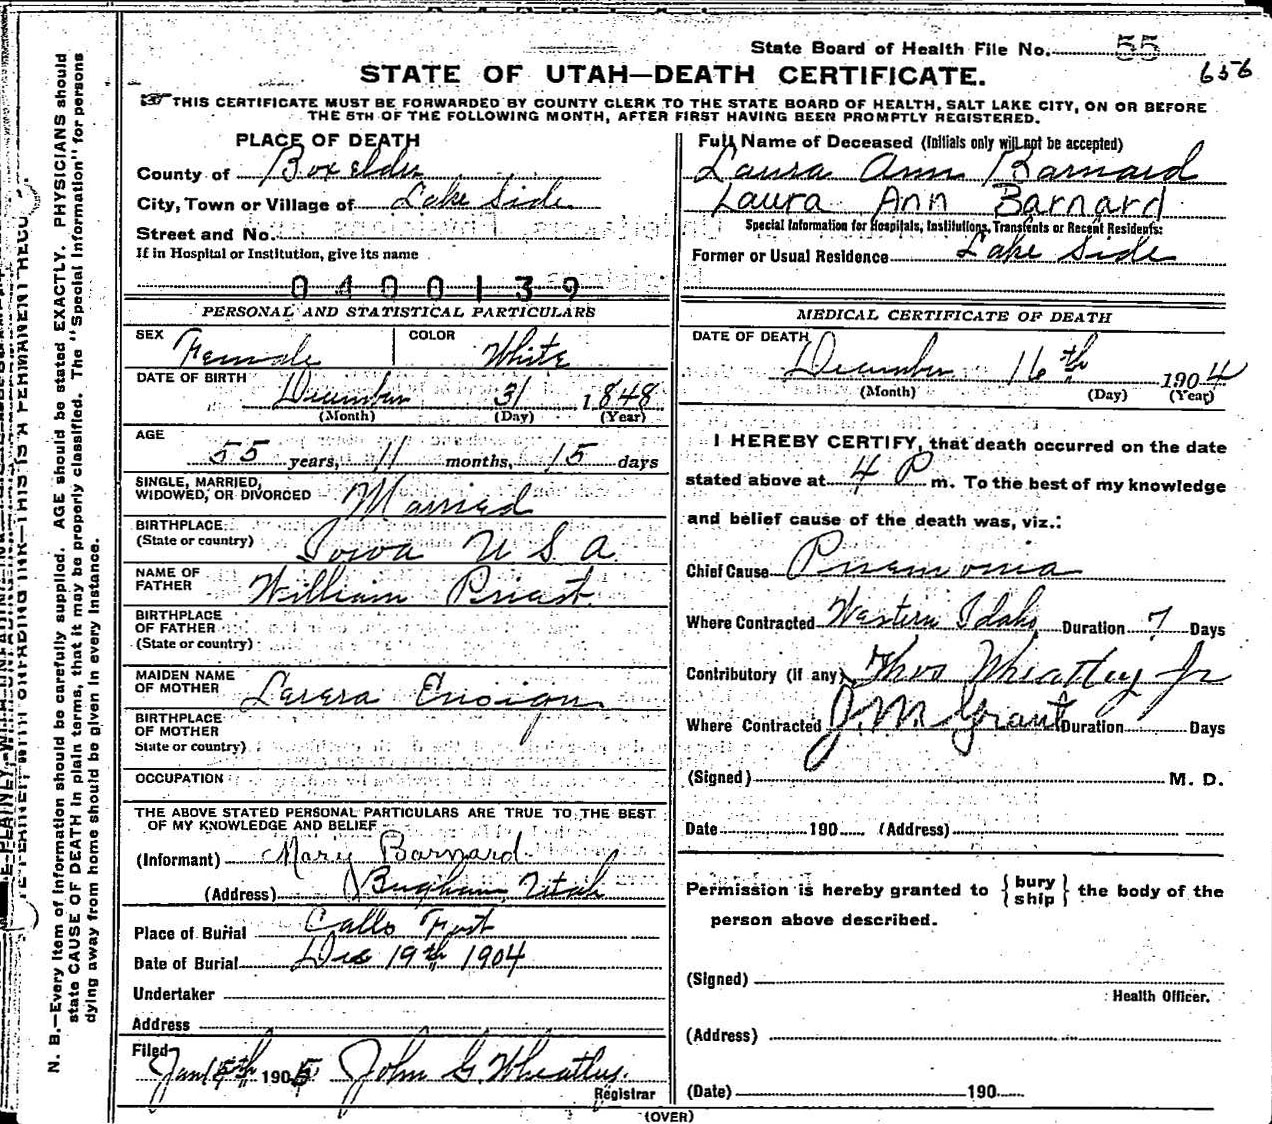 State Board of Health File No. 55
656
STATE OF UTAH—DEATH CERTIFICATE.
THIS CERTIFICATE MUST BE FORWARDED BY COUNTY CLERK TO THE STATE BOARD OF HEALTH, SALT LAKE CITY, ON OR BEFORE
THE 5TH OF THE FOLLOWING MONTH, AFTER FIRST HAVING BEEN PROMPTLY REGISTERED.
PLACE OF DEATH
County of Boxelder
City, Town or Village of Lake Side
Street and No.
If in Hospital or Institution, give its name
0400139
PERSONAL AND STATISTICAL PARTICULARS
SEX Female COLOR White
DATE OF BIRTH December 31 1848
(Month) (Day) (Year)
AGE
55 years, 11 months, 15 days
SINGLE, MARRIED,
WIDOWED, OR DIVORCED Married
BIRTHPLACE
(State or country) Iowa U S A
NAME OF
FATHER William Priest
BIRTHPLACE
OF FATHER
(State or country)
MAIDEN NAME
OF MOTHER Ensign
BIRTHPLACE
OF MOTHER
State or country)
OCCUPATION
THE ABOVE STATED PERSONAL PARTICULARS ARE TRUE TO THE BEST
OF MY KNOWLEDGE AND BELIEF
(Informant) Mary Barnard
(Address) Brigham, Utah
Place of Burial Calls Fort
Date of Burial Dec 19th 1904
Undertaker
Address
Filed Jan 5th 1905 John G. Wheatley.
Registrar
(OVER)
Full Name of Deceased (Initials only will not be accepted)
Laura Ann Barnard
Laura Ann Barnard
Special Information for Hospitals, Institutions, Transients or Recent Residents:
Former or Usual Residence Lake Side
MEDICAL CERTIFICATE OF DEATH
DATE OF DEATH
December 16th 1904
(Month) (Day) (Year)
I HEREBY CERTIFY, that death occurred on the date
stated above at 4 P m. To the best of my knowledge
and belief cause of the death was, viz.:
Chief Cause Pnemonia
Where Contracted Western Idaho Duration 7 Days
Contributory (if any) Thos Wheatley Jr
Where Contracted J.M. Grant Duration Days
(Signed) M. D.
Date 190 (Address)
Permission is hereby granted to {bury
ship} the body of the
person above described.
(Signed)
Health Officer.
(Address)
(Date) 190
N. B.—Every item of information should be carefully supplied. AGE should be stated EXACTLY. PHYSICIANS should
state CAUSE OF DEATH in plain terms, that it may be properly classified. The "Special Information" for persons
dying away from home should be given in every instance.
WITH UNFADING INK—THIS IS A PERMANENT RECO